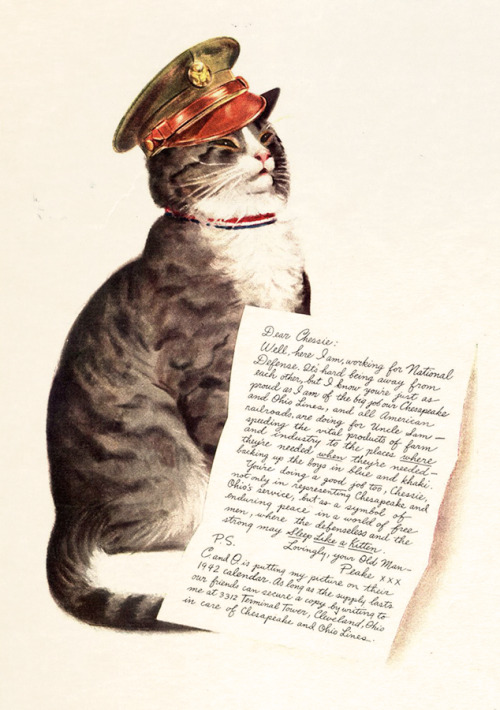 Dear Chessie:
Well, here I am, working for National
Defense. It's hard being away from
each other, but I know you're just as
proud as I am of the big job our Chesapeake
and Ohio Lines, and all American
railroads, are doing for Uncle Sam—
speeding the vital products of farm
and industry to the places where
they're needed when they're needed—
backing up the boys in blue and khaki.
You're doing a good job too, Chessie,
not only in representing Chesapeake and
Ohio's service, but as a symbol of
enduring peace in a world of free
men, where the defenseless and the
strong may Sleep Like a Kitten.
Lovingly, your Old Man—
Peake x x x
P.S.
C and O is putting my picture on their
1942 calendar. As long as the supply lasts
our friends can secure a copy by writing to
me at 3312 Terminal Tower, Cleveland, Ohio
in care of Chesapeake and Ohio Lines.